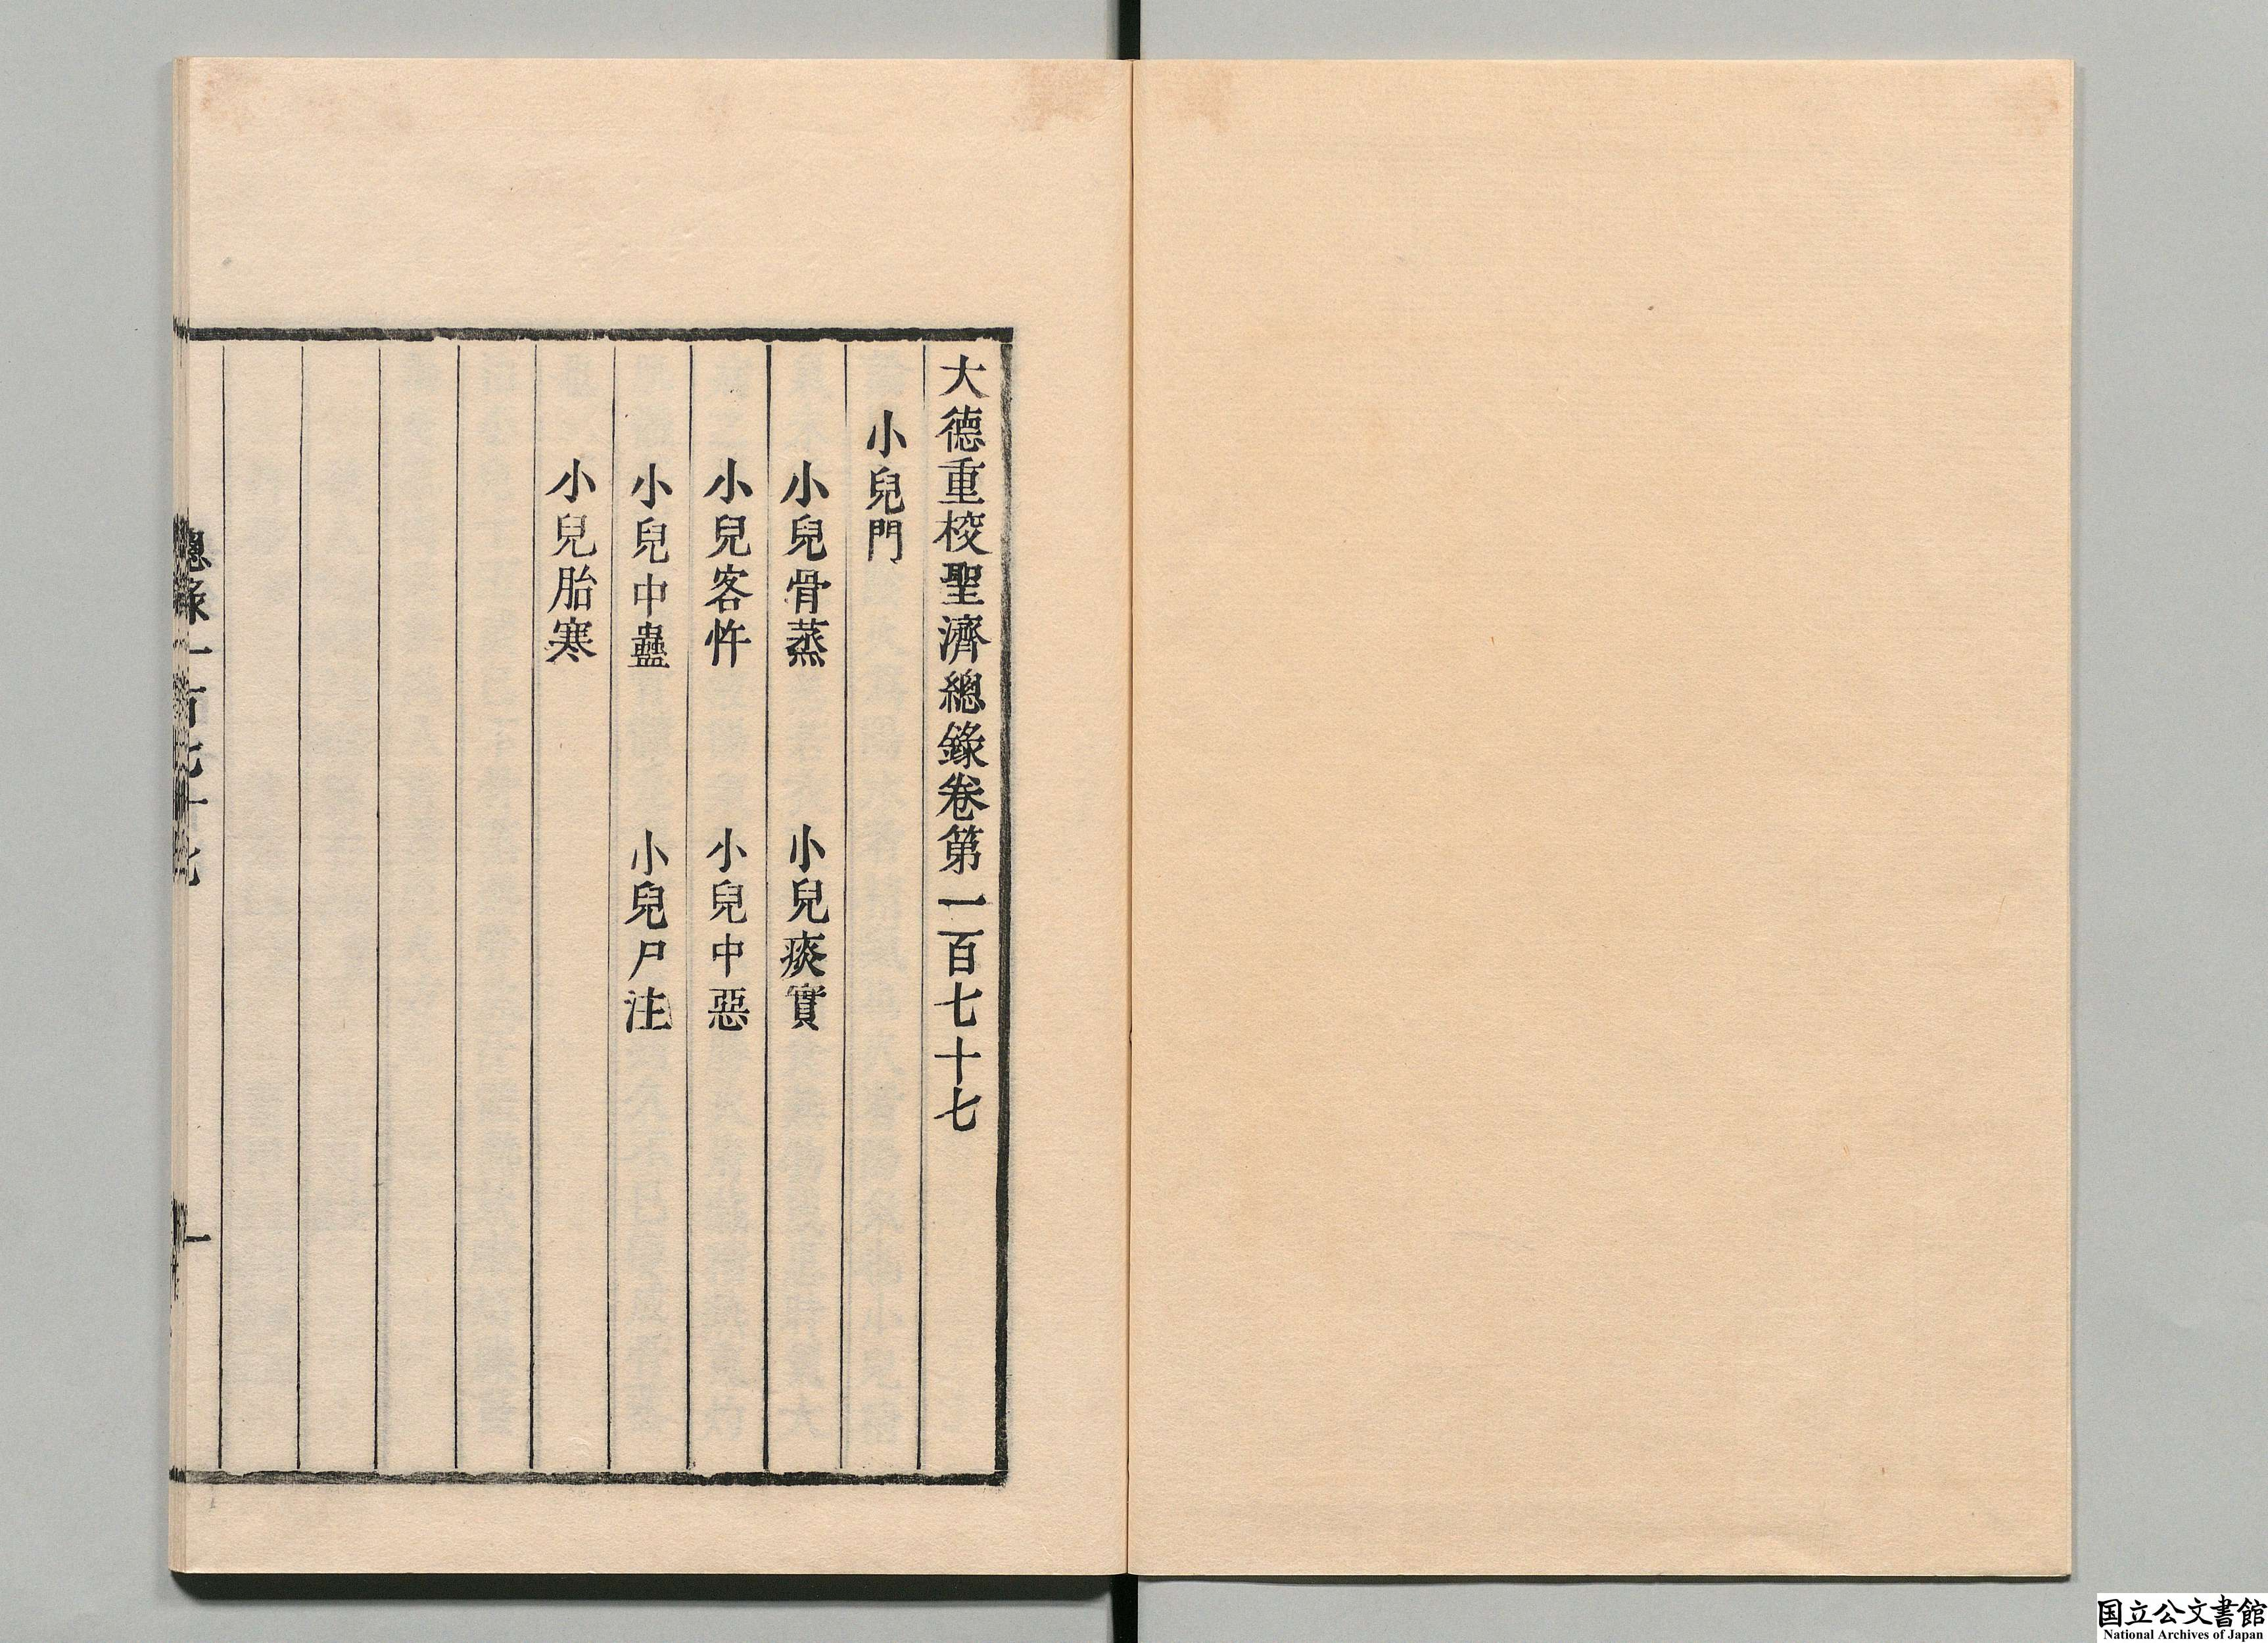 大德重校聖濟總錄卷第一百七十七
小兒門
小兒骨蒸　小兒痰實
小兒客忤　小兒中惡
小兒中蠱　小兒尸注
小兒胎寒
總錄一百七十七
一
国立公文書館
National Archives of Japan